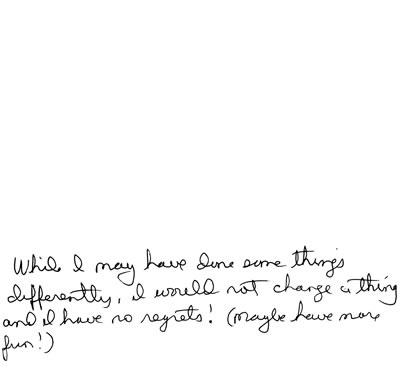 While I may have done some things
differently, I would not change a thing
and I have no regrets! (maybe have more
fun!)